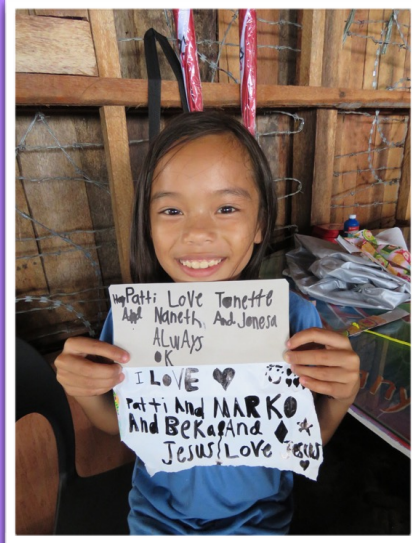 Patti Love Tonette
And Naneth, And Jonesa
ALWAys
OK
I LOVE
Patti And MARKO
And BeKa And
Jesus Love Jesus